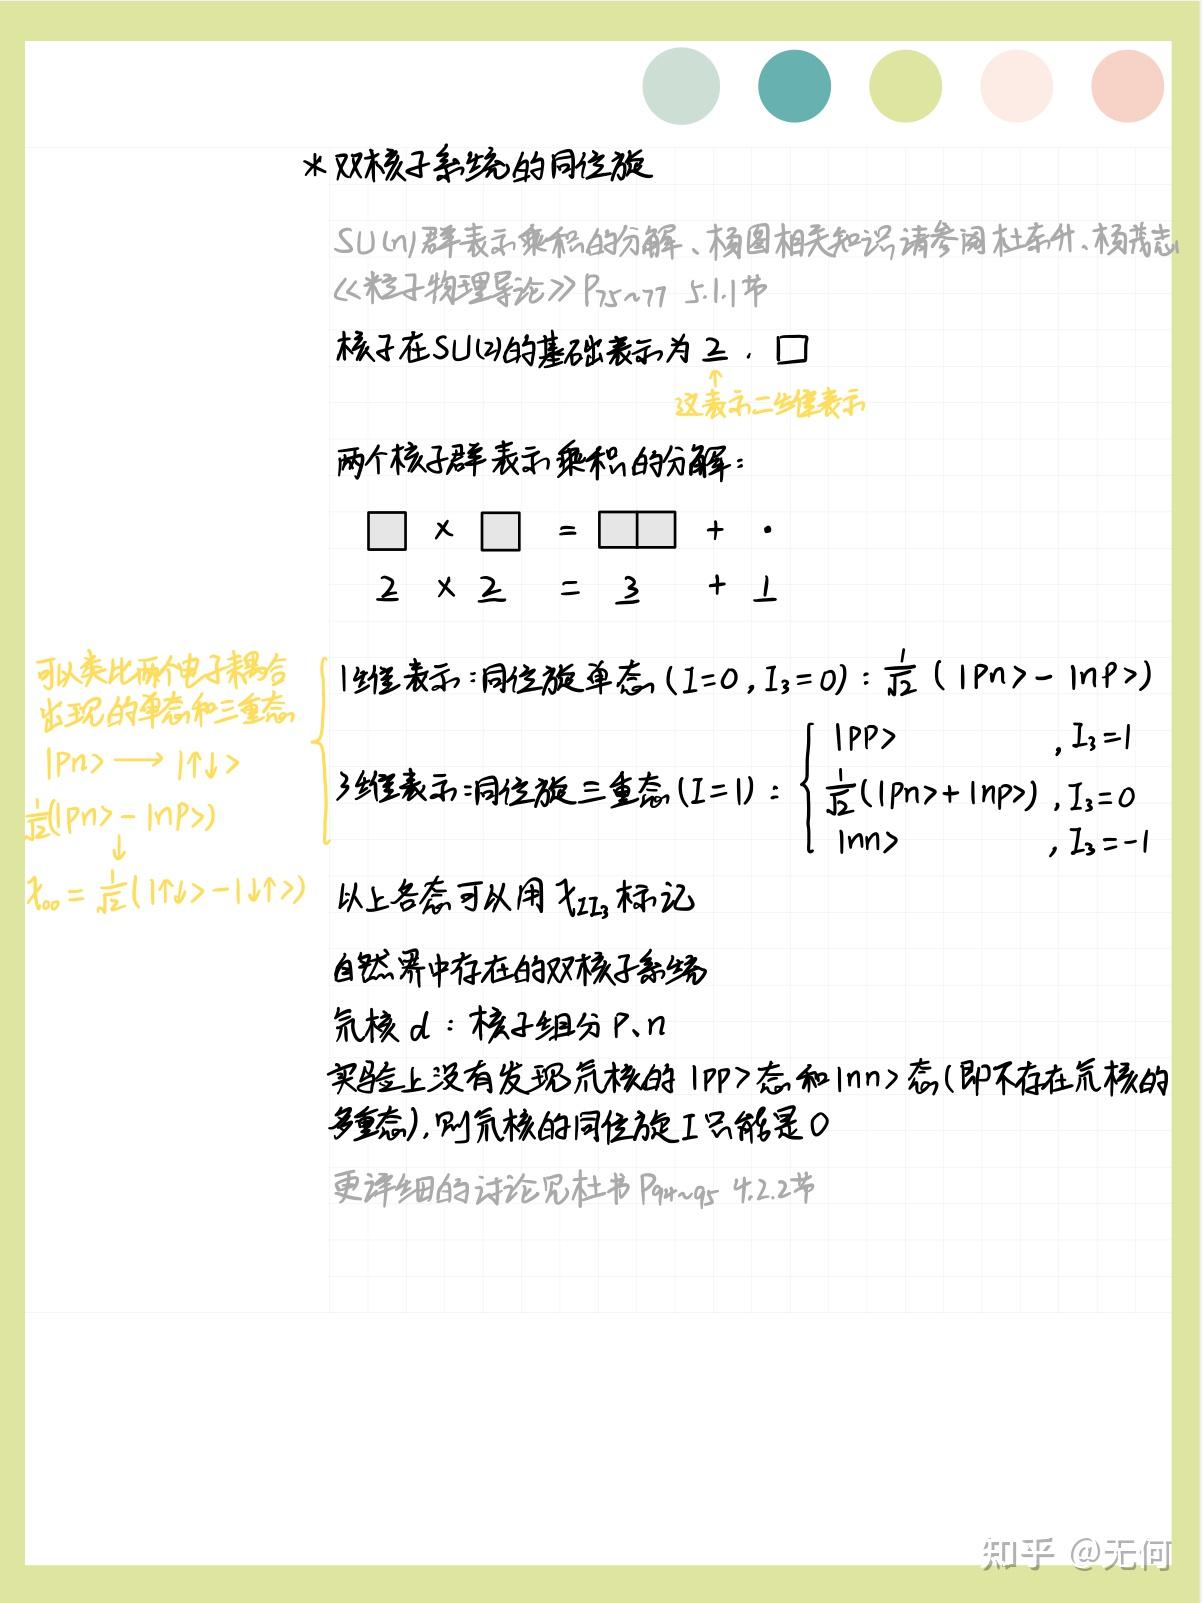 * 双核子系统的同位旋
SU(n)群表示乘积的分解、杨图相关知识请参阅杜东升、杨茂志
《粒子物理导论》P75~77 5.1.1节
核子在SU(2)的基础表示为 2 . □
↑
这表示二维表示
两个核子群表示乘积的分解:
□ × □ = □□ + ·
2 × 2 = 3 + 1
可以类比两个电子耦合
出现的单态和三重态
|pn> → |↑↓>
1/√2(|pn> - |np>)
↓
χ₀₀ = 1/√2(|↑↓> - |↓↑>)
1维表示:同位旋单态(I=0, I₃=0): 1/√2 (|pn> - |np>)
3维表示:同位旋三重态(I=1):
|pp> , I₃=1
1/√2(|pn>+|np>), I₃=0
|nn> , I₃=-1
以上各态可以用 χ_II₃ 标记
自然界中存在的双核子系统
氘核 d : 核子组分 p、n
实验上没有发现氘核的 |pp>态和|nn>态(即不存在氘核的
多重态),则氘核的同位旋I只能是0
更详细的讨论见杜书 P94~95 4.2.2节
知乎 @无何